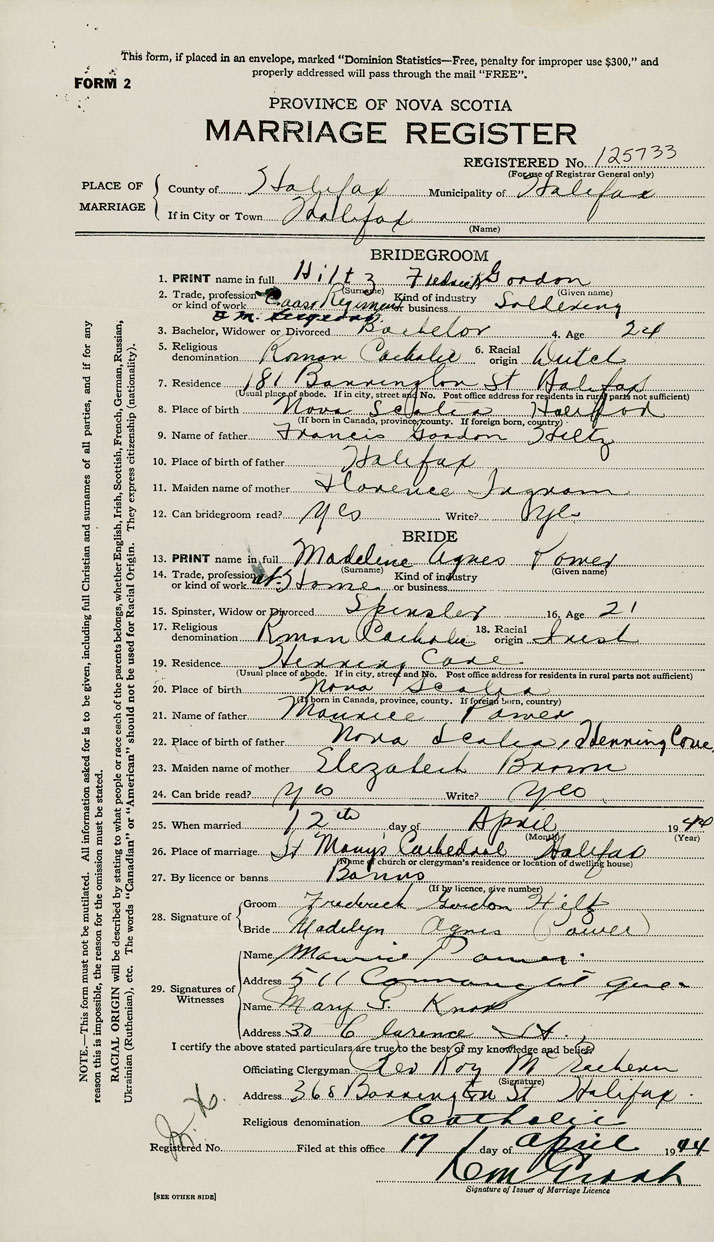 This form, if placed in an envelope, marked "Dominion Statistics—Free, penalty for improper use $300," and
properly addressed will pass through the mail "FREE".
FORM 2
PROVINCE OF NOVA SCOTIA
MARRIAGE REGISTER
REGISTERED No. 125733
(For use of Registrar General only)
PLACE OF MARRIAGE
County of Halifax Municipality of Halifax
If in City or Town Halifax
(Name)
BRIDEGROOM
1. PRINT name in full Hiltz Fredrick Gordon
(Surname) (Given name)
2. Trade, profession or kind of work Coast Regiment Kind of industry or business Soldiering
3. Bachelor, Widower or Divorced Bachelor 4. Age 24
5. Religious denomination Roman Catholic 6. Racial origin Dutch
7. Residence 181 Barrington St Halifax
(Usual place of abode. If in city, street and No. Post office address for residents in rural parts not sufficient)
8. Place of birth Nova Scotia
(If born in Canada, province, county. If foreign born, country)
9. Name of father Francis Gordon Hiltz
10. Place of birth of father Halifax
11. Maiden name of mother Florence Ingram
12. Can bridegroom read? Yes Write? Yes
BRIDE
13. PRINT name in full Madeline Agnes Power
(Surname) (Given name)
14. Trade, profession or kind of work at Home Kind of industry or business
15. Spinster, Widow or Divorced Spinster 16. Age 21
17. Religious denomination Roman Catholic 18. Racial origin Irish
19. Residence Herring Cove
(Usual place of abode. If in city, street and No. Post office address for residents in rural parts not sufficient)
20. Place of birth Nova Scotia
(If born in Canada, province, county. If foreign born, country)
21. Name of father Maurice Power
22. Place of birth of father Nova Scotia, Herring Cove
23. Maiden name of mother Elezabeth Brown
24. Can bride read? Yes Write? Yes
25. When married 12th day of April 19
(Month) (Year)
26. Place of marriage St Marys Cathedral Halifax
(Name of church or clergyman's residence or location of dwelling house)
27. By licence or banns Banns
(If by licence, give number)
28. Signature of
Groom Frederick Gordon Hiltz
Bride Madelyn Agnes (Power)
29. Signatures of Witnesses
Name Maurice Power
Address 511 Connaught Ave
Name Mary G. Knox
Address 30 Clarence St.
I certify the above stated particulars are true to the best of my knowledge and belief.
Officiating Clergyman Rev Roy M
(Signature)
Address 368 Barrington St Halifax.
Religious denomination Catholic
Registered No. Filed at this office 17 day of April 1944
Signature of Issuer of Marriage Licence
[SEE OTHER SIDE]
NOTE.—This form must not be mutilated. All information asked for is to be given, including full Christian and surnames of all parties, and if for any
reason this is impossible, the reason for the omission must be stated.
RACIAL ORIGIN will be described by stating to what people or race each of the parents belongs, whether English, Irish, Scottish, French, German, Russian,
Ukrainian (Ruthenian), etc. The words "Canadian" or "American" should not be used for Racial Origin. They express citizenship (nationality).